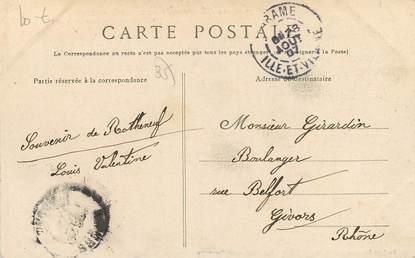 CARTE POSTALE
La Correspondance au recto n'est pas acceptée par tous les pays étrangers. à la Poste)
Partie réservée à la correspondance
Adresse du destinataire
35
RAMÉ
AOUT
ILLE-ET-VIL
Souvenir de Rotheneuf
Louis Valentine
Monsieur Girardin
Boulanger
rue Belfort
Givors
Rhône